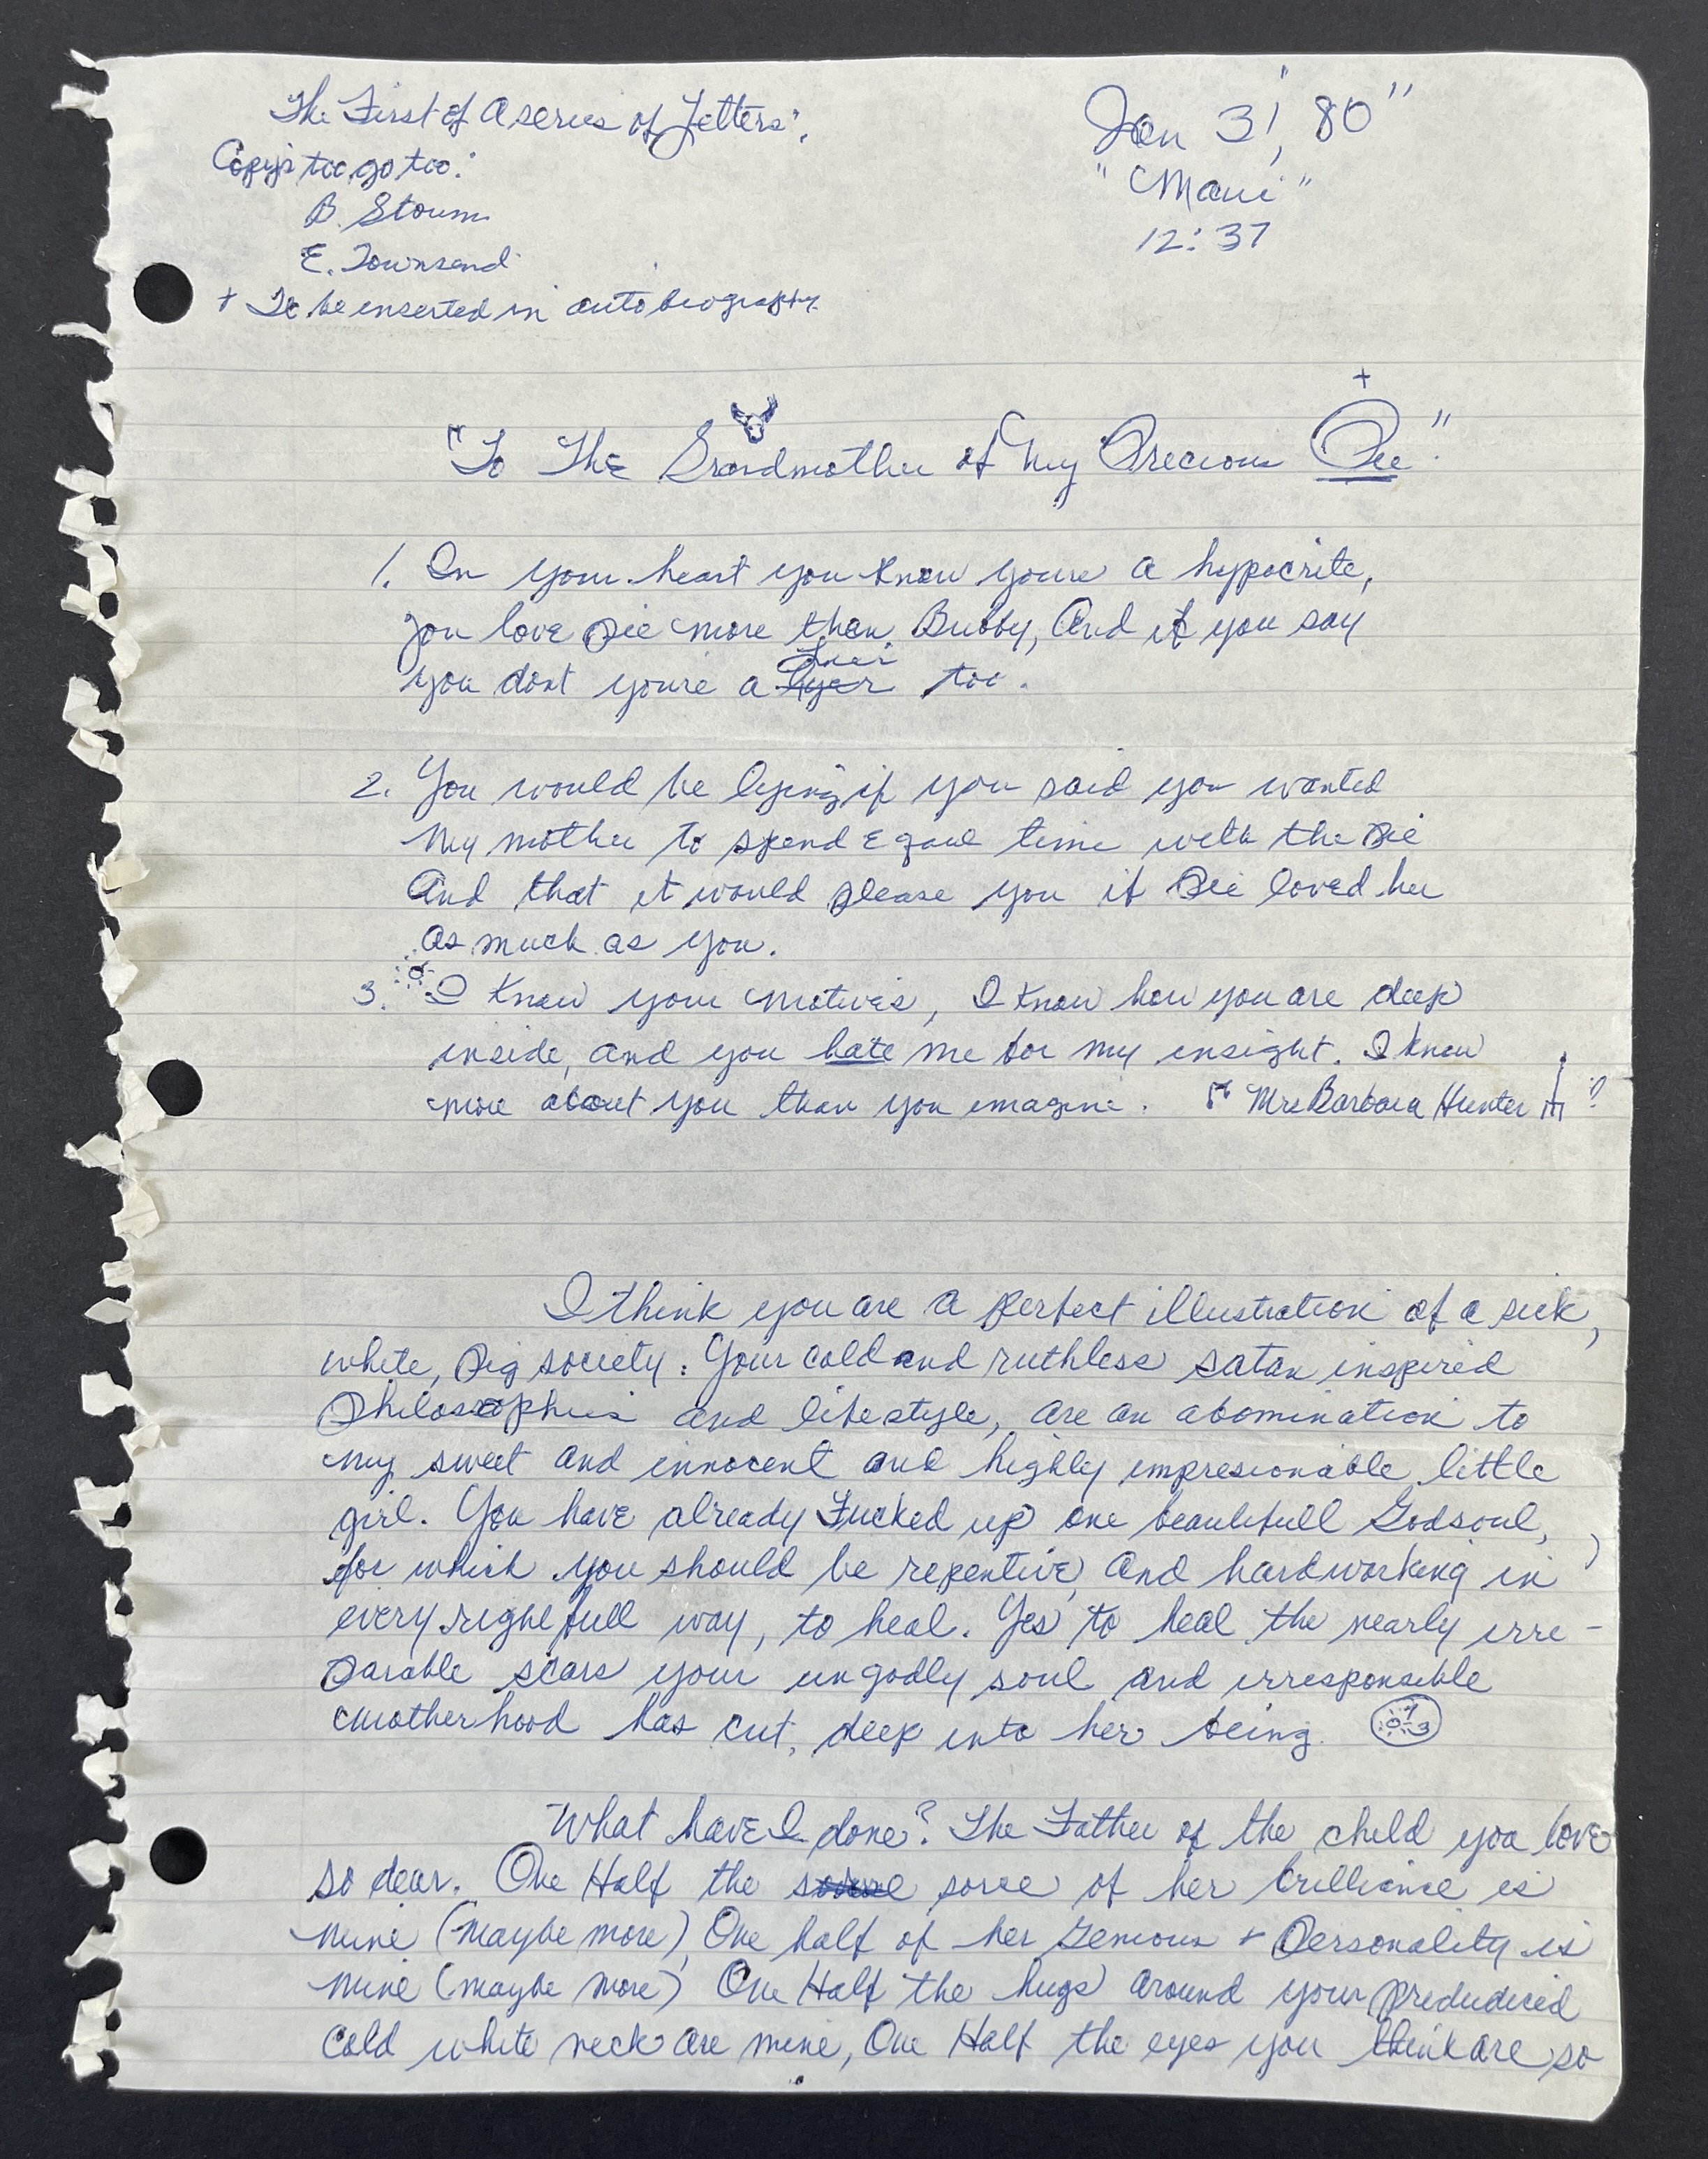 The First of A series of Letters",
Copys too go too:
B. Storm
E. Townsend
+ To be inserted in autobiography.
Jan 31, 80"
"Maui"
12:37
"To The Grandmother of my Precious Pie"
1. In your heart you know youre a hypocrite,
you love Pie more than Bubby, And if you say
you dont youre a lyer liar too.
2. You would be lying if you said you wanted
my mother to spend Equal time with the Pie
And that it would please you if Pie loved her
as much as you.
3. I know your motives, I know how you are deep
inside, and you hate me for my insight. I know
more about you than you imagine. "Mrs Barbara Hunter"
I think you are a perfect illustration of a sick,
white, Pig society: Your cold and ruthless satan inspired
Philosophies and lifestyle, are an abomination to
my sweet and innocent and highly impresionable little
girl. You have already Fucked up one beautifull Godsoul,
for which you should be repentive, and hardworking in
every rightfull way, to heal. Yes to heal the nearly irre-
Parable scars your ungodly soul and irresponsible
motherhood has cut, deep into her being. 7 3
What have I done? The Father of the child you love
so dear. One Half the sorce of her brilliance is
mine (maybe more) One half of her Genious + Personality is
mine (maybe more) One Half the hugs around your Predudiced
cold white neck are mine, One Half the eyes you think are so